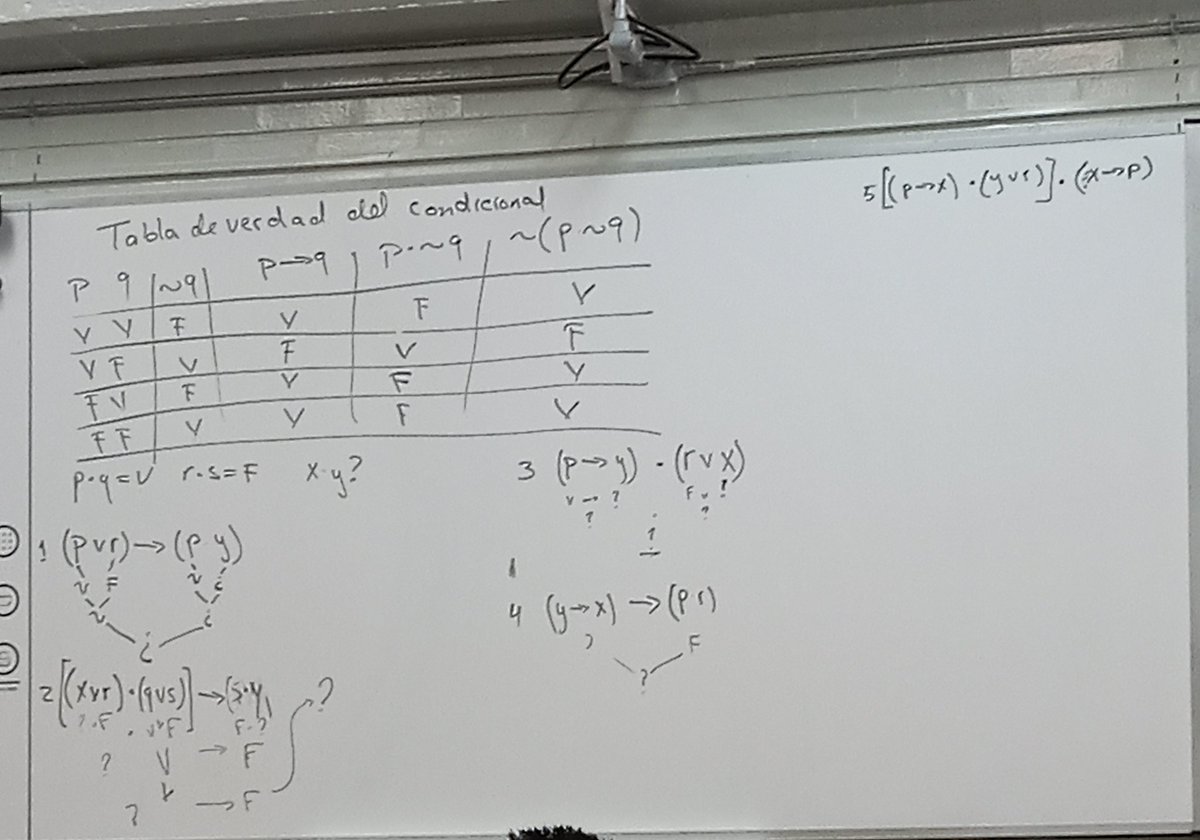 Tabla de verdad del condicional
p q ~q p→q p·~q ~(p·~q)
V V F V F V
V F V F V F
F V F V F V
F F V V F V
p·q=V r·s=F x·y?
1 (p v r)→(p y)
V F V ¿
V ¿
¿
2 [(x v r)·(q v s)]→(s·y)
?·F · V v F F·?
? V → F
? → F ?
3 (p→y)·(r v x)
V → ? F v ?
? ?
?
4 (y→x)→(p r)
? F
?
5 [(p→x)·(y v r)]·(x→p)